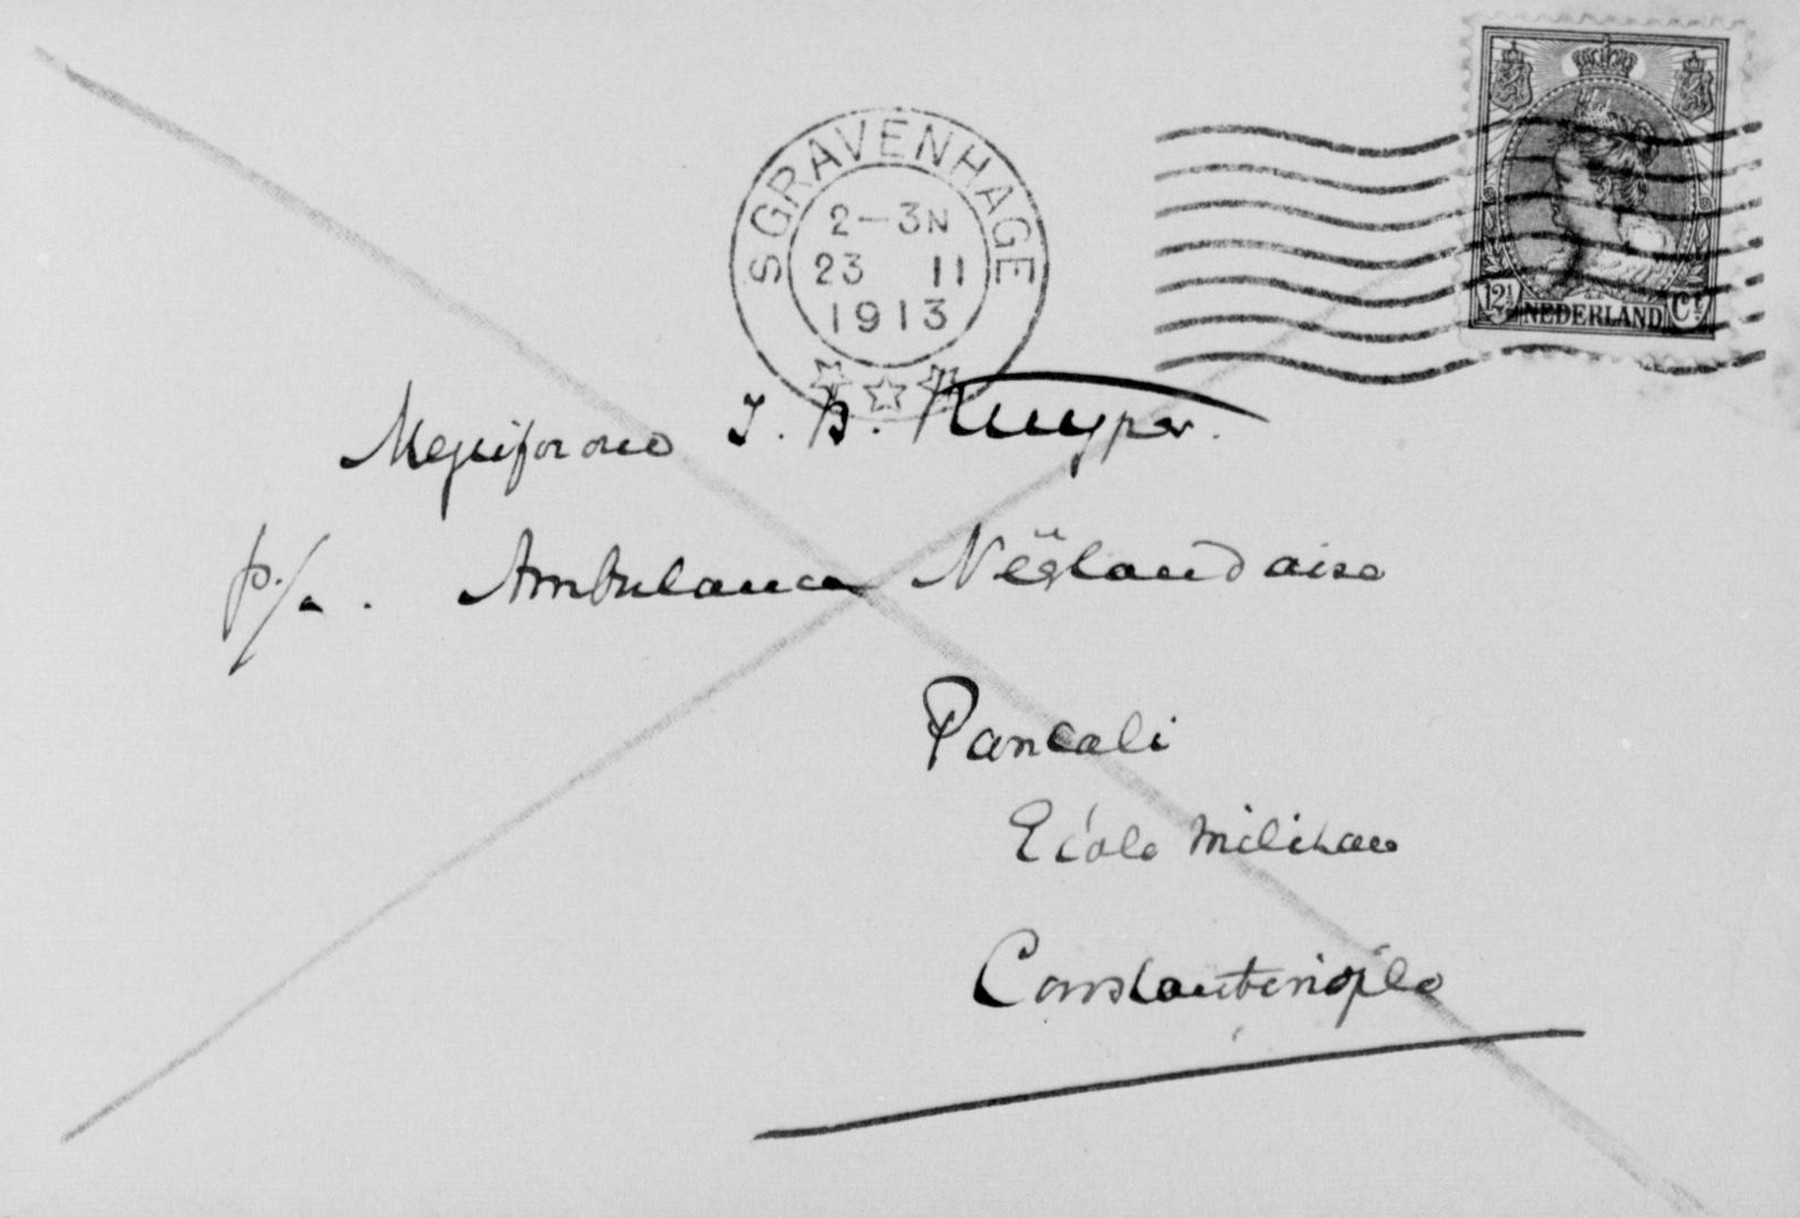 S GRAVENHAGE
2–3N
23 II
1913
12½ NEDERLAND Ct
Mejufvrouw J. H. Kuyper.
p/a. Ambulance Néerlandaise
Pancali
École militaire
Constantinople